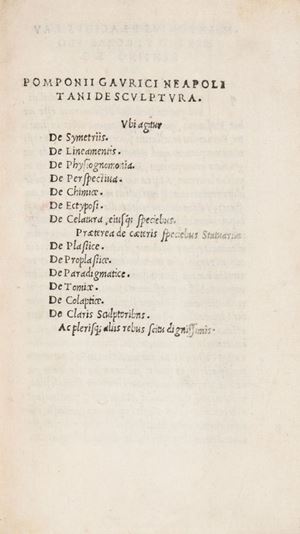 POMPONII GAVRICI NEAPOLI
TANI DE SCVLPTVRA.
Vbi agitur
De Symetriis.
De Lineamentis.
De Physiognomonia.
De Perspectiua.
De Chimicæ.
De Ectyposi.
De Celatura, eiusq; speciebus.
Præterea de cæteris speciebus Statuariæ
De Plastice.
De Proplasticæ.
De Paradigmatice.
De Tomicæ.
De Colapticæ.
De Claris Sculptoribus.
Ac plerisq; aliis rebus scitu dignissimis.